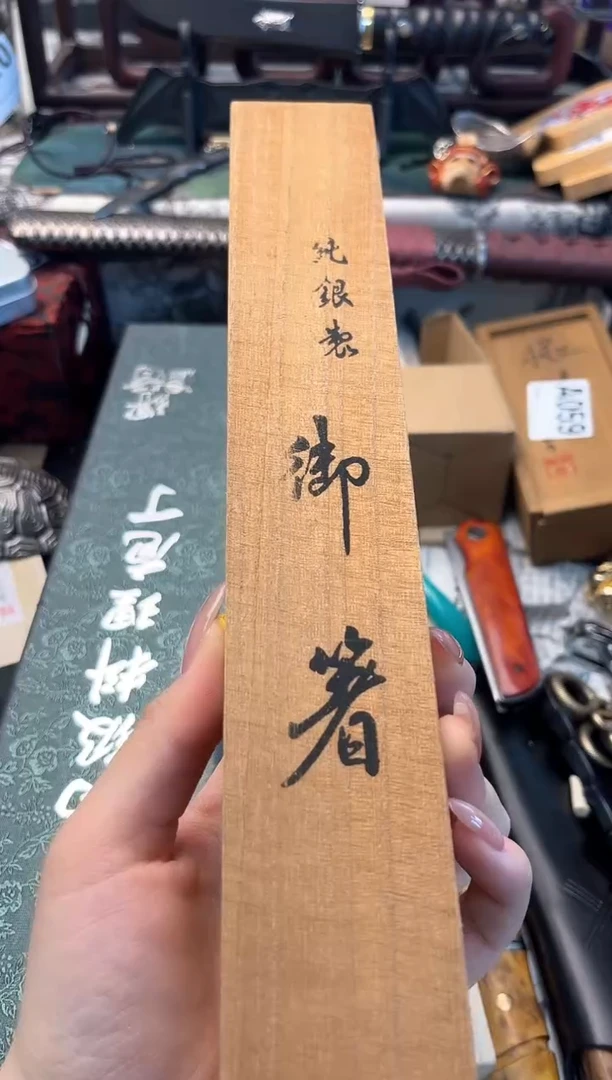 純銀製
御箸
級料理庖丁
A059